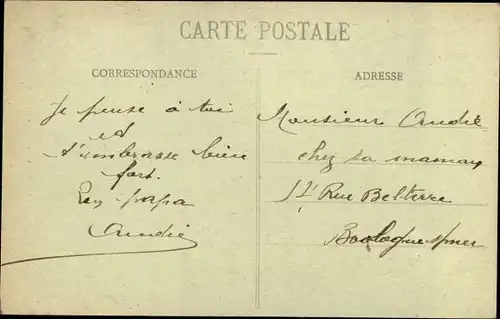 CARTE POSTALE
CORRESPONDANCE
Je pense à toi
et
t'embrasse bien
fort.
Ton papa
André
ADRESSE
Monsieur André
chez sa maman
Rue Belterre
Boulogne s/mer